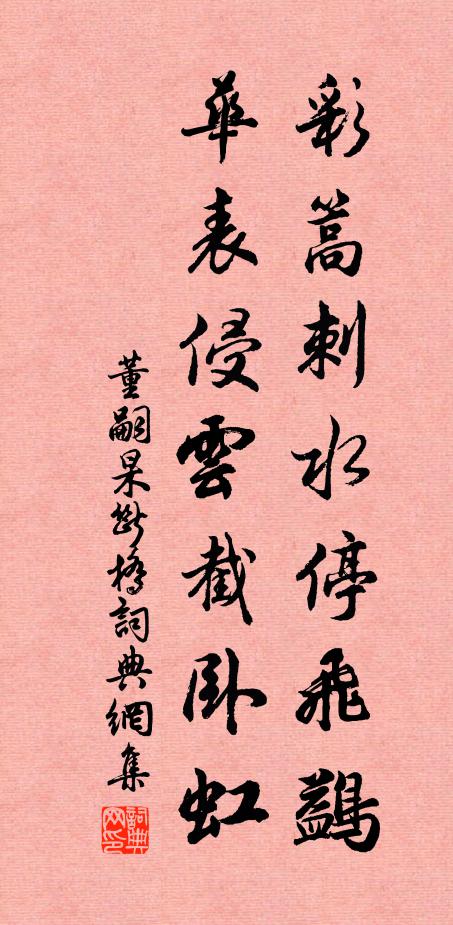 彩篙刺水停飛鷁
華表侵雲截卧虹
董嗣杲斷橋詞典網集
詞典网印